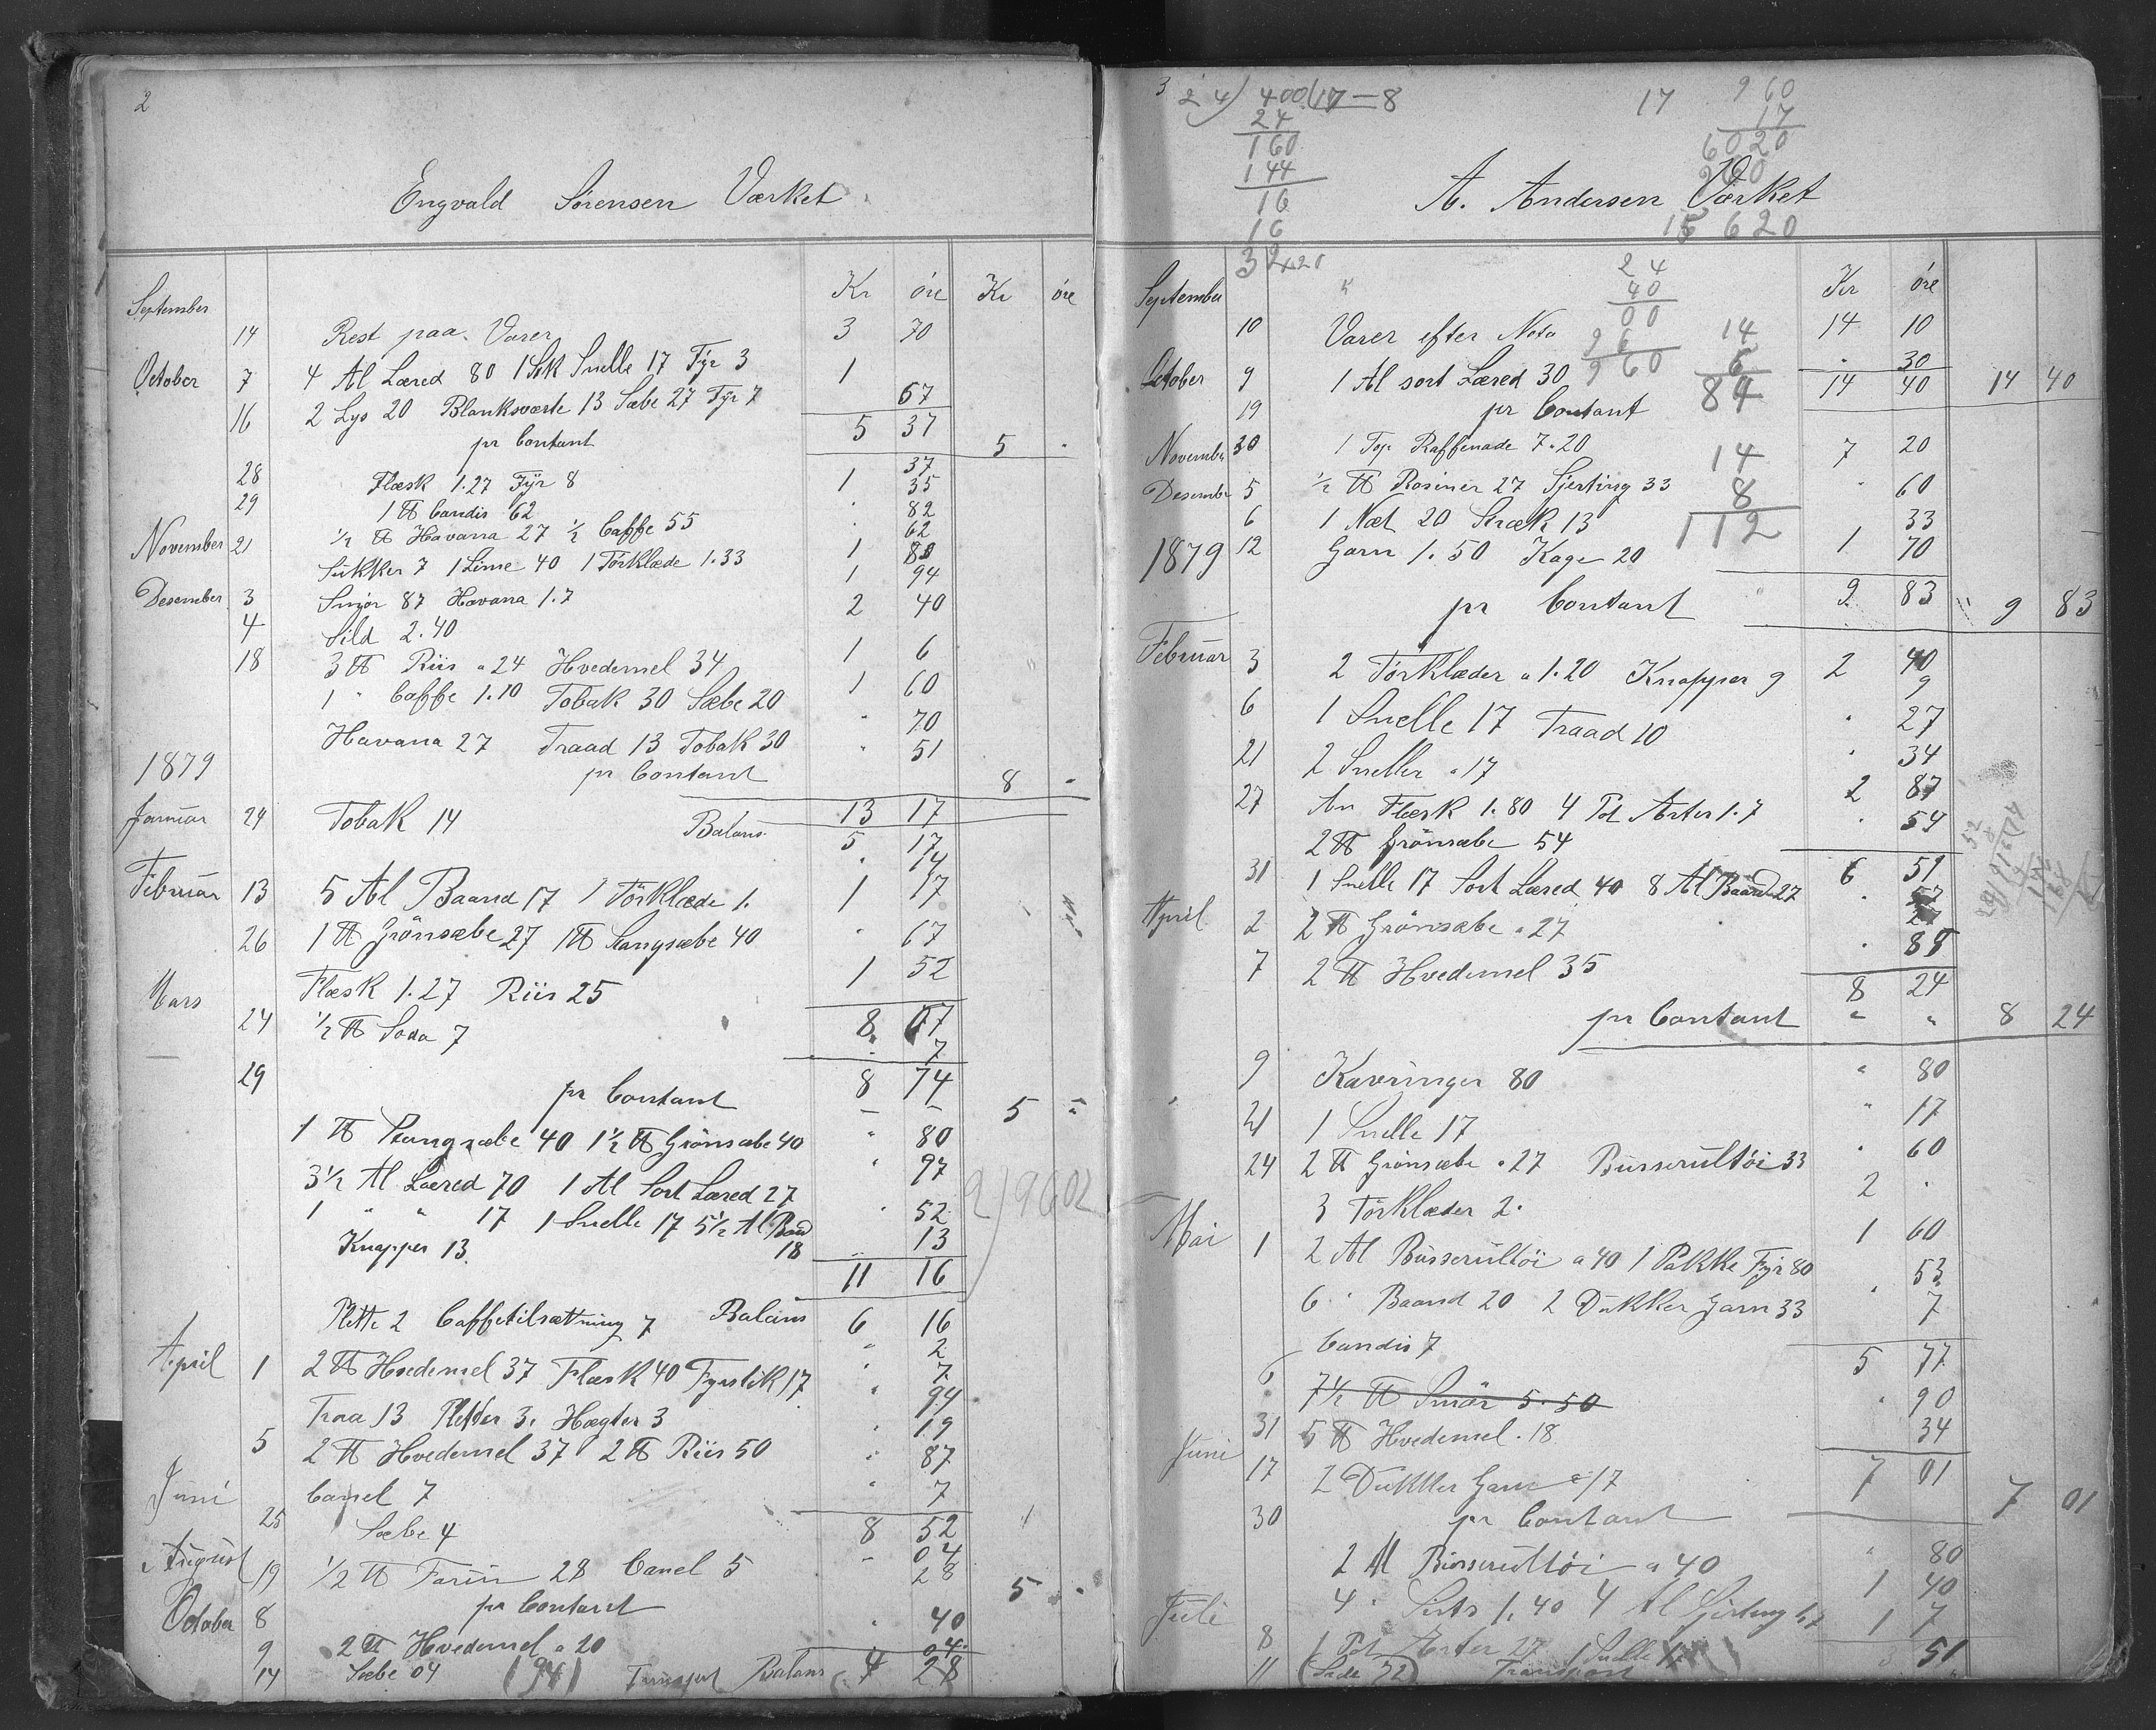 2
Engvald Sørensen Værket
Kr øre Kr øre
September
14 Rest paa Varer 3 70
October 7 4 Al Læred 80 1 Stk Snelle 17 Fýr 3 1
16 2 Lys 20 Blanksværte 13 Sæbe 27 Fýr 7 67
5 37
pr Contant 5 "
37
28 Flæsk 1.27 Fýr 8 1 35
29 1 ℔ Candis 62 " 82
November 21 ½ ℔ Havana 27 ½ Caffe 55 " 62
Sukker 7 1 Lime 40 1 Törklæde 1.33 1 80
Desember 3 Smör 87 Havana 1.7 1 94
4 Sild 2.40 2 40
18 3 ℔ Riis a 24 Hvedemel 34 1 6
1 " Caffe 1.10 Tobak 30 Sæbe 20 1 60
Havana 27 Traad 13 Tobak 30 " 70
" 51
1879 pr Contant 8 "
13 17
Januar 24 Tobak 14 Balans 5 17
" 14
Februar 13 5 Al Baand 17 1 Törklæde 1. 1 17
26 1 ℔ Grönsæbe 27 1 ℔ Stangsæbe 40 " 67
Flæsk 1.27 Riis 25 1 52
Mars
24 ½ ℔ Soda 7 8 67
" 7
29 pr Contant 8 74
5 "
1 ℔ Stangsæbe 40 1½ ℔ Grönsæbe 40 " 80
3½ Al Læred 70 1 Al Sort Læred 27 " 97
1 " " 17 1 Snelle 17 5½ Al Baad 18 " 52
Knapper 13 " 13
11 16
2) 9602
Plette 2 Caffetilsætning 7 Balans 6 16
" 2
April 1 2 ℔ Hvedemel 37 Flæsk 40 Fyrstik 17 " 7
" 94
Traa 13 Pletter 3. Hægter 3 " 19
5 2 ℔ Hvedemel 37 2 ℔ Riis 50 " 87
Juni Canel 7 " 7
25 Sæbe 4 8 52
" 04
August 19 ½ ℔ Farin 28 Canel 5 28
October 8 pr Contant 5 "
9 2 ℔ Hvedemel a 20 " 40
14 Sæbe 04 04
(94) Transport Balans 4 28
3
24) 400 (17 = 8
24
160
144
16
16
17
960
17
6020
15 620
A. Andersen Værket
24
40
00
96
960
Kr øre
September
10 Varer efter Nota 14 10
October 9 1 Al sort Læred 30 " 30
14
6
84
14 40 14 40
19 pr Contant
November 30 1 Top Raffenade 7.20 7 20
Desember 5 ½ ℔ Rosiner 27 Sjerting 33 " 60
6 1 Næt 20 Stræk 13 33
14
8
112
1879 12 Garn 1.50 Kage 20 1 70
pr Contant 9 83 9 83
Februar 3 2 Törklæder a 1.20 Knapper 9 2 40
9
6 1 Snelle 17 Traad 10 " 27
21 2 Sneller a 17 " 34
27 Am Flæsk 1.80 4 Pot Arter 1.7 2 87
2 ℔ Grönsæbe 54 " 54
6 51
31 1 Snelle 17 Sort Læred 40 8 Al Baand 27 " 57
27
April 2 2 ℔ Grönsæbe a 27
7 2 ℔ Hvedemel 35 " 88
8 24
pr Contant " " 8 24
9 Kavringer 80 " 80
21 1 Snelle 17 " 17
24 2 ℔ Grönsæbe a 27 Busserultöi 33 " 60
3 Törklæder 2. 2 "
Mai 1 2 Al Busserultöi a 40 1 Pakke Fyr 80 1 60
6 " Baand 20 2 Dukker Garn 33 " 53
Candis 7 7
5 77
6 7½ ℔ Smör 5.50
31 5 ℔ Hvedemel . 18 " 90
Juni 17 2 Dukker Garn a 17 34
7 01
30 pr Contant 7 01
2 Al Busserultöi a 40 " 80
4 " Sirts 1.40 4 Al Sjirting 1.7 1 40
Juli 1 7
8 1 Pot Arter 27 1 Snelle
11 (Side 72) Transport 3 51